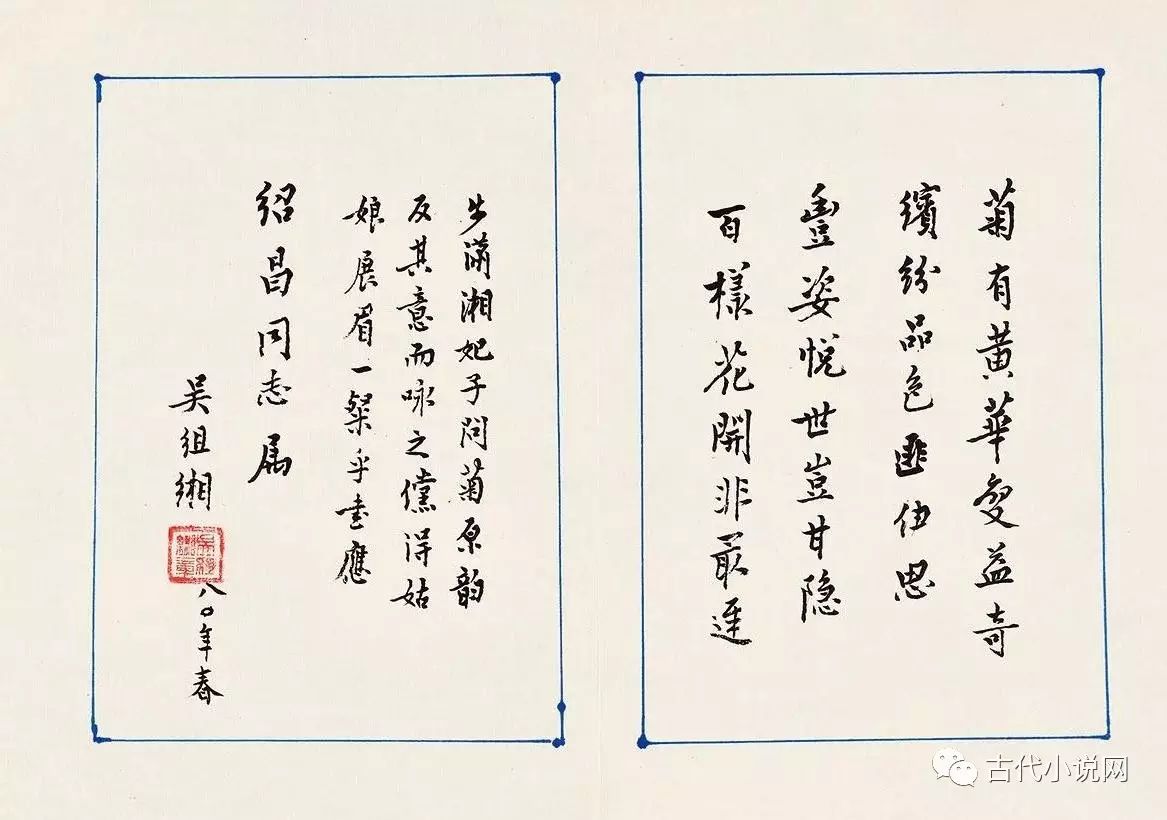 菊有黄華變益奇
繽紛品色匪伊思
豐姿悅世豈甘隐
百樣花開非最遲
步瀟湘妃子问菊原韵
反其意而咏之儻得姑
娘展眉一粲乎書應
绍昌同志属
吴组缃
八〇年春
古代小说网